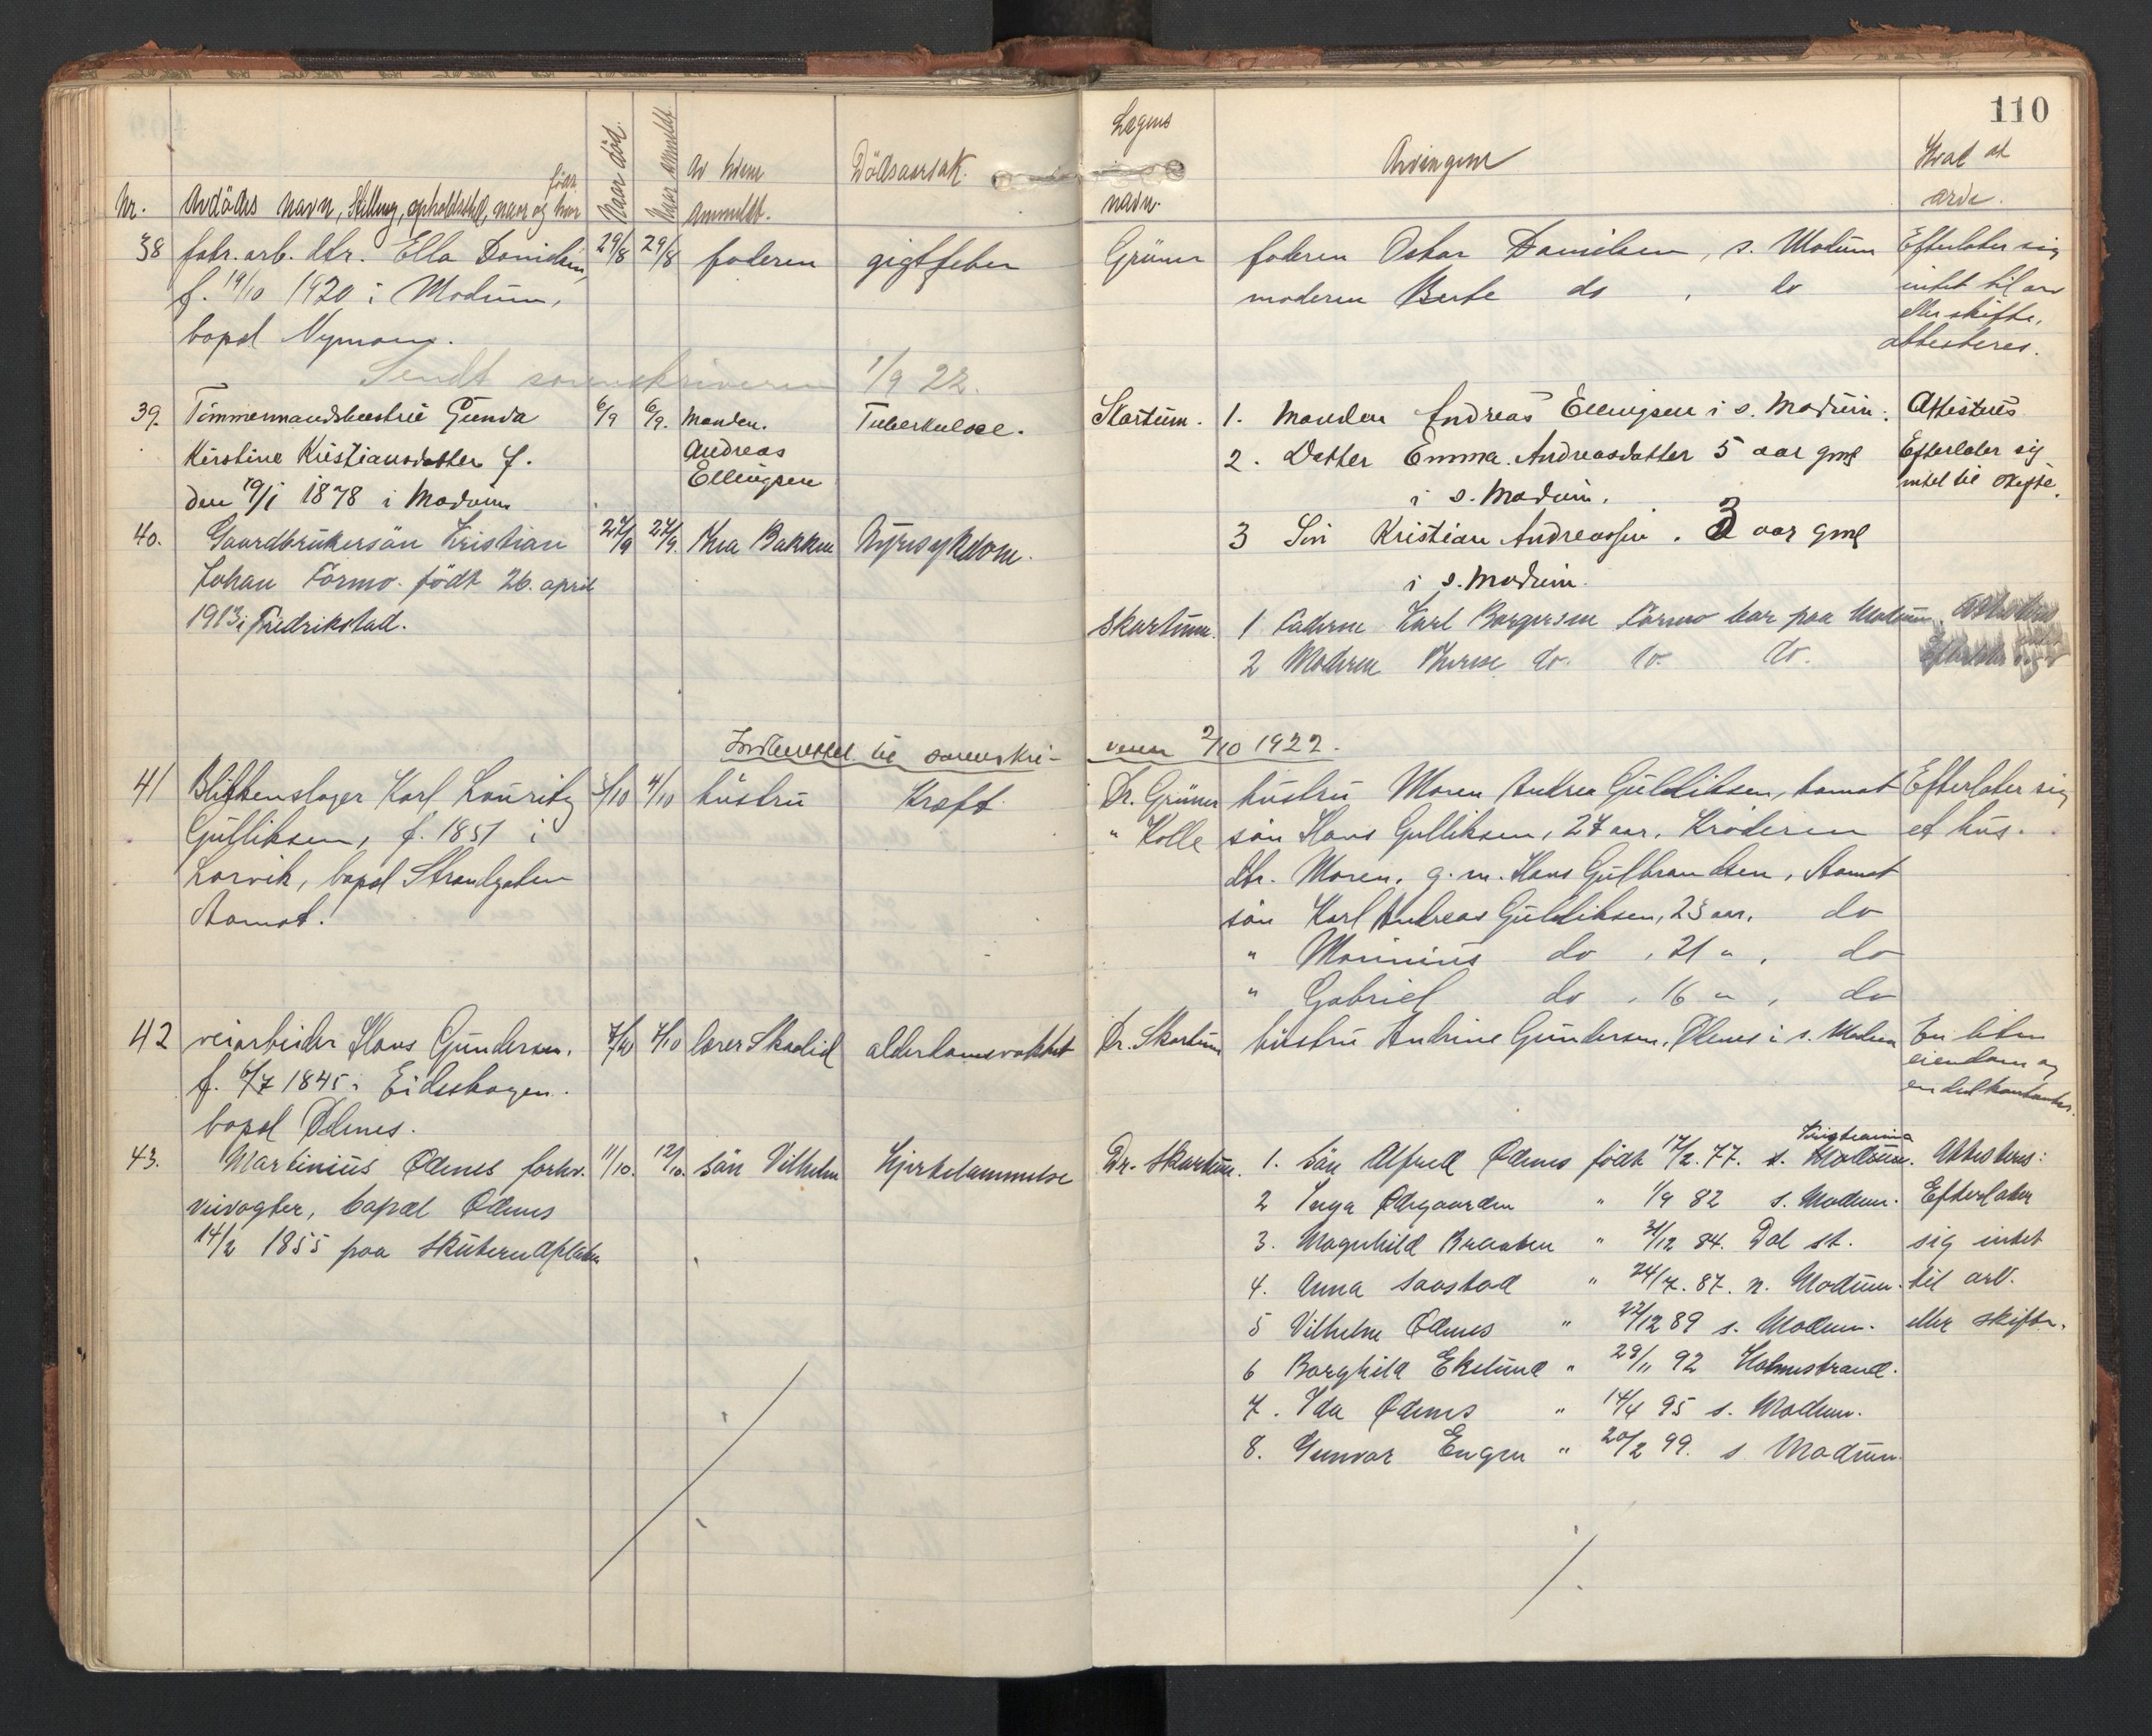 110
Nr. Avdödes navn, Stilling, opholdssted, naar og hvor född
Naar död.
Naar anmeldt
Av hvem anmeldt.
Dödsaarsak.
Lægens navn.
Arvingene
Hvad at arve.
38 fabr. arb. dtr. Ella Danielsen, 29/8 29/8 faderen gigtfeber Grüner faderen Oskar Danielsen, s. Modum Efterlater sig
f. 19/10 1920 i Modum, moderen Berte do , do intet til arv
eller skifte,
bopæl Nymoen. attesteres.
Sendt sorenskriveren 1/9 22.
39. Tömmermandshustru Gunda 6/9 6/9. Manden. Tuberkulose. Skartum. 1. Manden Andreas Ellingsen i s. Modum. Attesteres
Kirstine Kristiansdatter f. Andreas 2. Datter Emma Andreasdatter 5 aar gml Efterlater sig
den 19/1 1878 i Modum Ellingsen i s. Modum. intet til skifte.
40. Gaardbrukersön Kristian 24/9 24/9. Thea Bakken Nyresykdom. 3 Sön Kristian Andreassen. 3 aar gml
Johan Formo. född 26. april i s. Modum.
1913 i Fredrikstad. Skartum. 1 Faderen Karl Borgersen Formo bor paa Modum.
2 Moderen Therese do. do. do.
Indberettet til sorenskriveren 2/10 1922.
41 Blikkenslager Karl Lauritz 3/10 4/10 hustru Kræft. Dr. Grüner hustru Maren Andrea Gulliksen, Aamot Efterlater sig
Gulliksen, f. 1851 i " Kolle sön Hans Gulliksen, 27 aar, Kröderen et hus.
Larvik, bopæl Strandgaten dtr. Maren, g. m. Hans Gulbrandsen, Aamot
Aamot. sön Karl Andreas Gulliksen, 23 aar, do
" Marinius do , 21 " , do
" Gabriel do , 16 " , do
42 veiarbeider Hans Gundersen, 7/10 7/10 lærer Skadlid alderdomsvakhet Dr. Skartum hustru Andrine Gundersen, Ødenes i s. Modum En liten
f. 6/7 1845 i Eidskogen. eiendom og
bopæl Ødenes. en del kontanter.
43. Martinius Ødenes forhv. 11/10. 12/10. Sön Vilhelm Hjertelammelse Dr. Skartum. 1. Sön Alfred Ødenes född 17/2. 77. s. Modum. Kristiania Attesteres:
veivogter, bopæl Ødenes 2 Inga Ødegaarden " 1/9 82 s. Modum. Efterlater
14/2 1855 paa Skuterudflaten 3. Magnhild Braaten " 31/12 84. Dal st. sig intet
4. Anna Saastad " 24/7. 87. n. Modum. til arv.
5 Vilhelm Ødenes " 22/12 89 s. Modum. eller skifte.
6 Borghild Ekelund " 29/11 92 Holmestrand.
7. Ida Ødenes " 14/4 95 s. Modum.
8. Gunvor Engen " 20/2 99. s Modum.